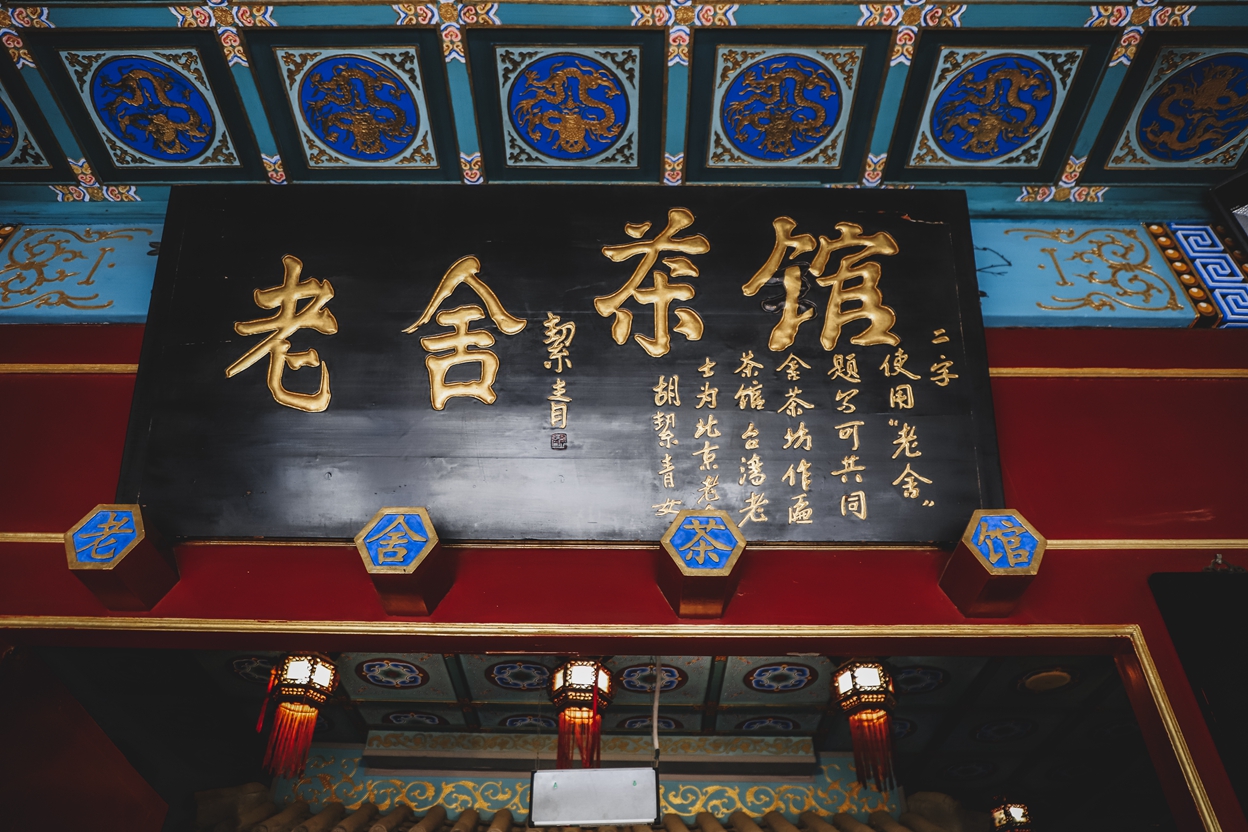 老舍茶馆
絜青
胡絜青女
士为北京老
茶馆台湾老
舍茶坊作匾
题写可共同
使用“老舍”
二字
老舍茶馆